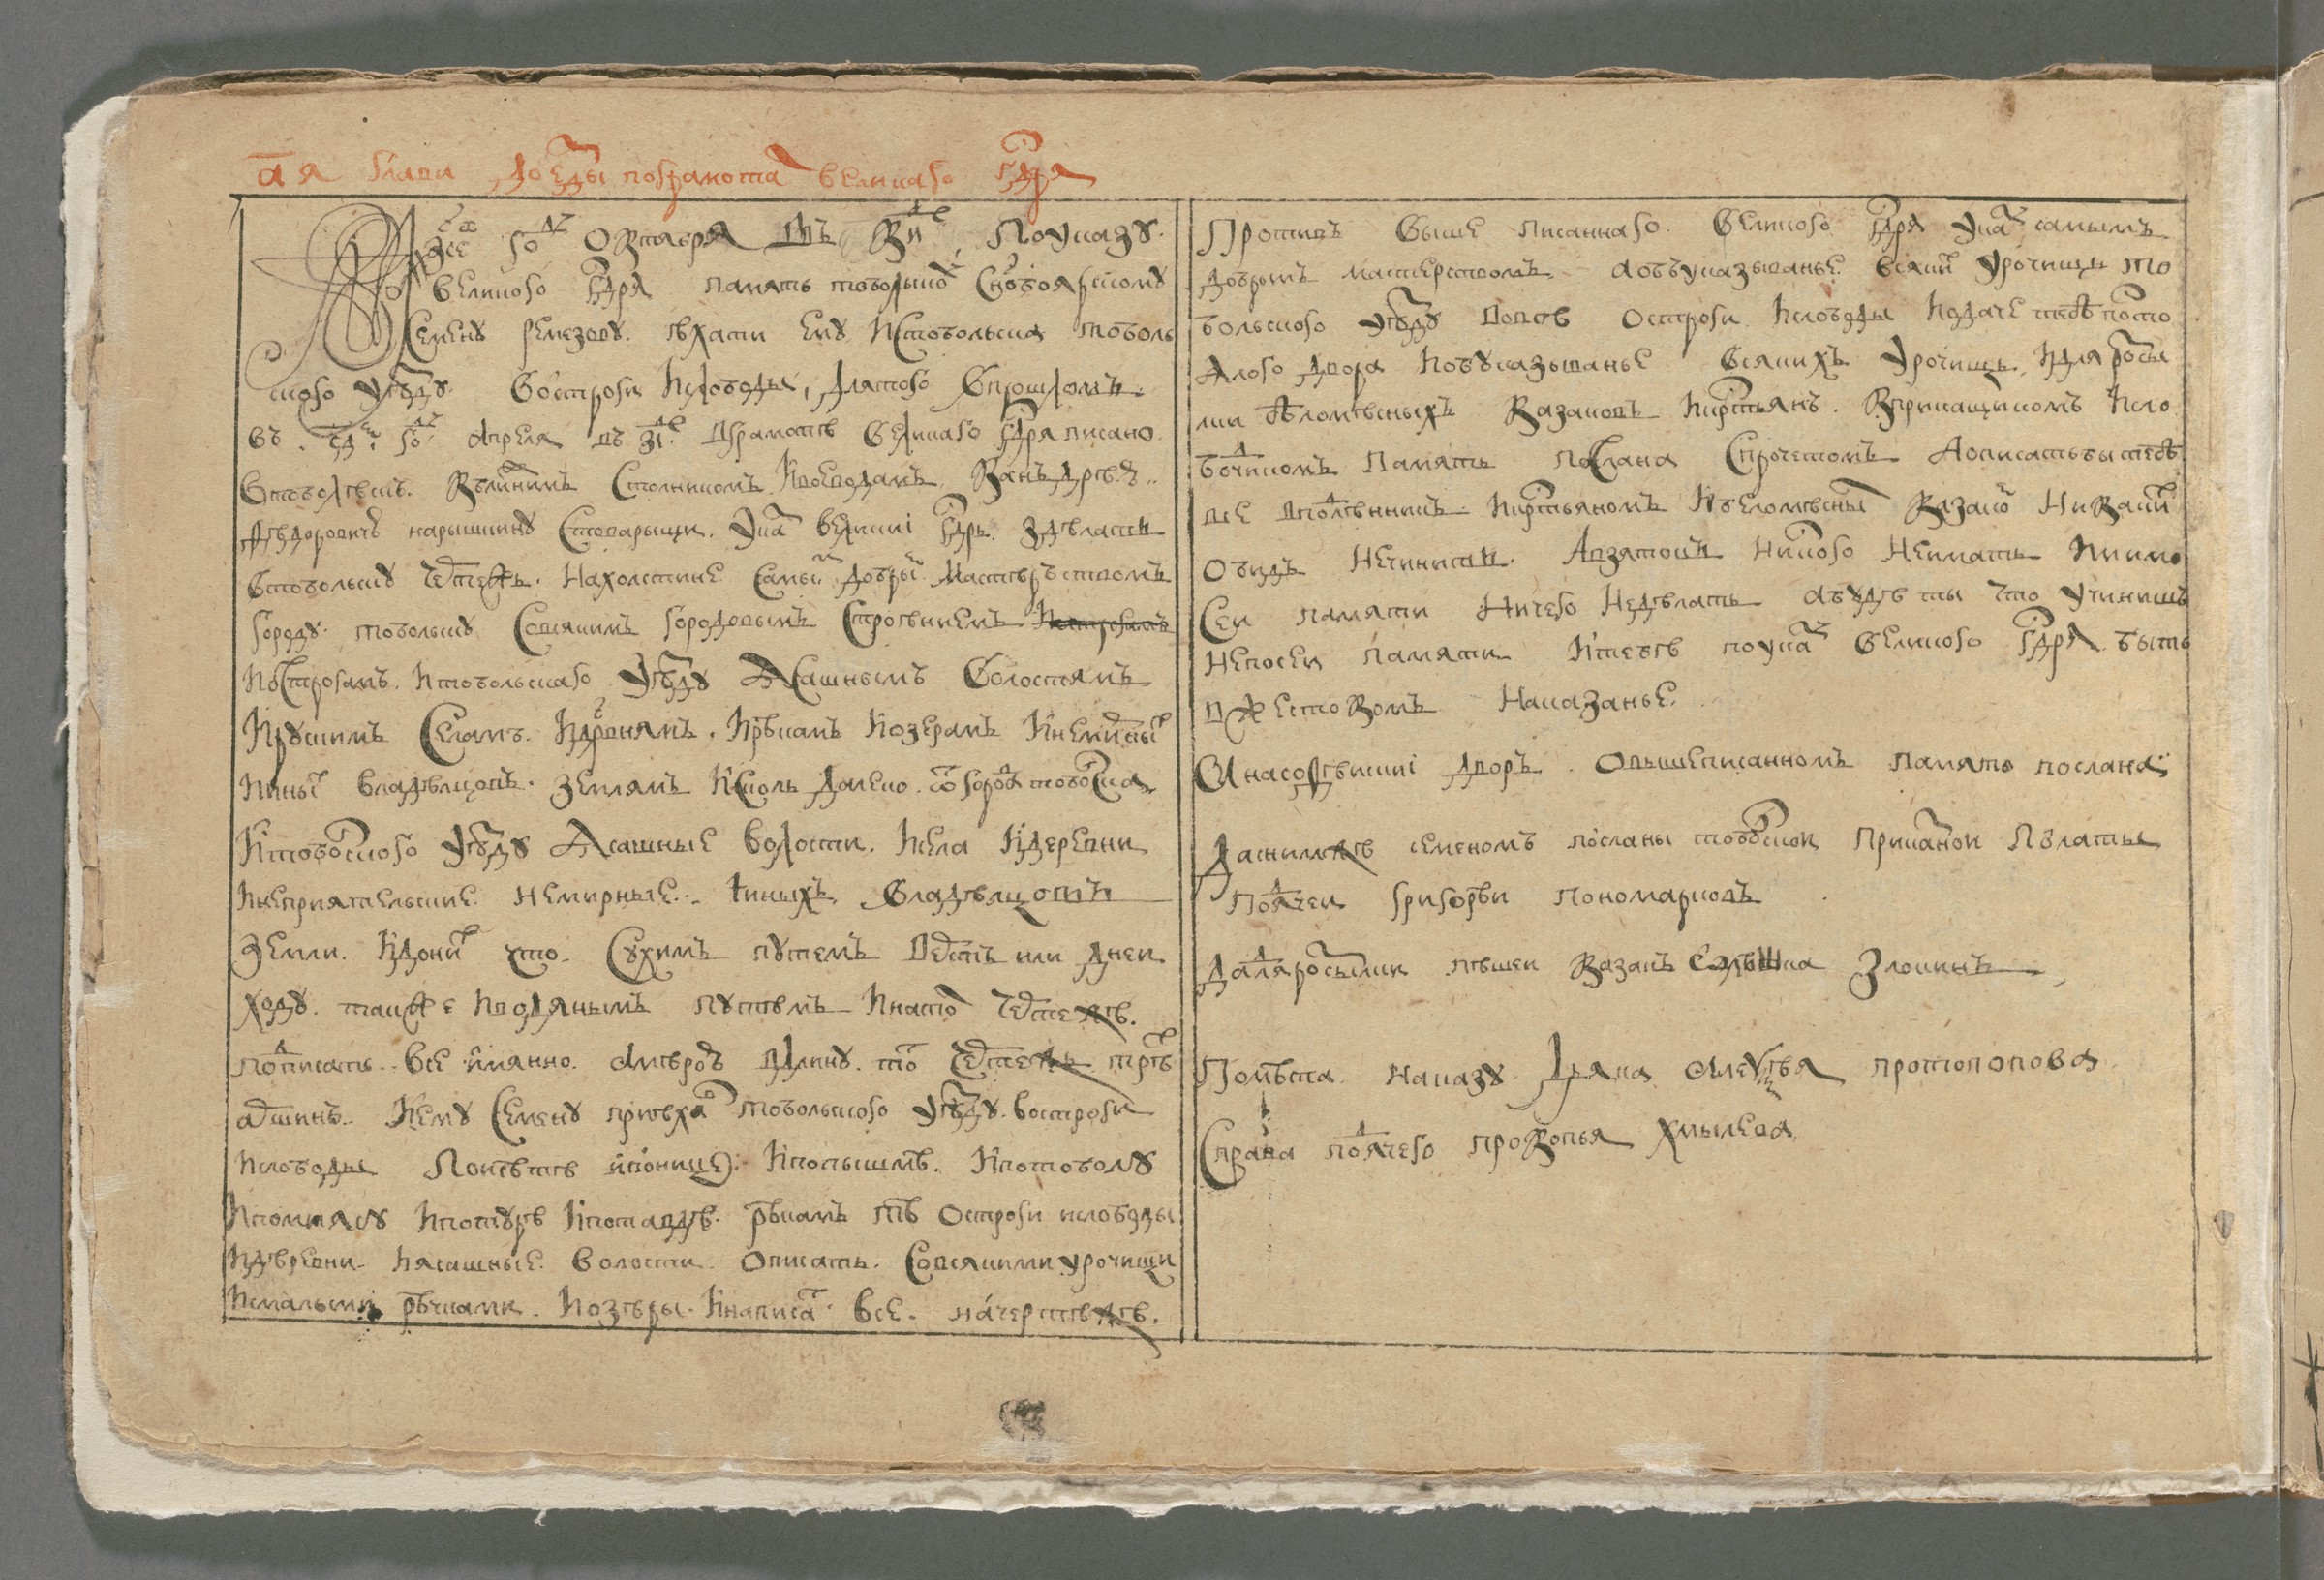 а҃ я глава доѣзды пограмота великаго гдря
году октября въ ки по указу
великого гдря память тоболскому сн҃у боярскому
Семену Ремезову. ѣхати ему ис тоболска тоболь
ского уезду в остроги и слободы, для того в прошлом
въ году апреля въ зı грамоте великаго гдря писано
в тоболескъ к ближним столником и воеводам к Андрею
Федоровичю нарышкину с товарыщи. указал великиі гдрь зделати
в тобольску чертежъ. на холстине самым добрым мастерством
городу тобольску со всяким городовым строениемъ
и острогамъ и тобольскаго уезду ясашнымъ волостямъ
и рускимъ селамъ и деревнямъ. и рѣкамъ и озерамъ и неми҃рныхъ
и иныхъ владелцовъ землямъ и сколь далеко от города тобольска
и тоболского уезду ясашные волости и села и деревни
и неприятельские немирные и иныхъ владелцовъ
земли и до них что сухимъ путемъ верстъ или днеи
ходу. такъже и водянымъ путемъ и на том чертеже
подписать все имянно а мѣрою в длину тот чертежъ трех
аршинъ. и ему Семену приѣхав тобольского уезду в остроги
и слободы по исете и по нице и по пышме и по тоболу
и по миясу и по туре и по тавде рѣкамъ те остроги и слободы
и деревни и ясашные волости описать со всякими урочищи
и с малыми рѣчками и озеры и написать все на чертеже
Противъ выше писанного великого гдря указу самымъ
добрымъ мастерствомъ а объ указыванье всяких урочищь то
больского уезду во все остроги и слободы и о даче тебѣ посто
ялого двора и об указыванье всякихъ урочищь и для розсы
лки бѣломѣсныхъ казаковъ и крестьянъ к прикащикомъ и сло
бодчиком память послана с прочетомъ а описать бы тебѣ
все в подленникъ и крестьяномъ и беломѣсным казаком никакие
обидъ не чинити а взятокъ ни с кого не имать и мимо
сеи памяти ничего не делать а буде ты что учинишь
не по сеи памяти и тебѣ по указу великого гдря быть
в жестокомъ наказанье
А на софѣискиі дворъ о вышеписанномъ память послана
Да с ним же семеномъ посланы тоболскои приказнои полаты
подъячеи григореи пономаревъ
да для розсылки пѣшеи казакъ злокинъ
Помѣта наказу дьяка алексѣя протопопова
Справа подъячего прокопья хмылева